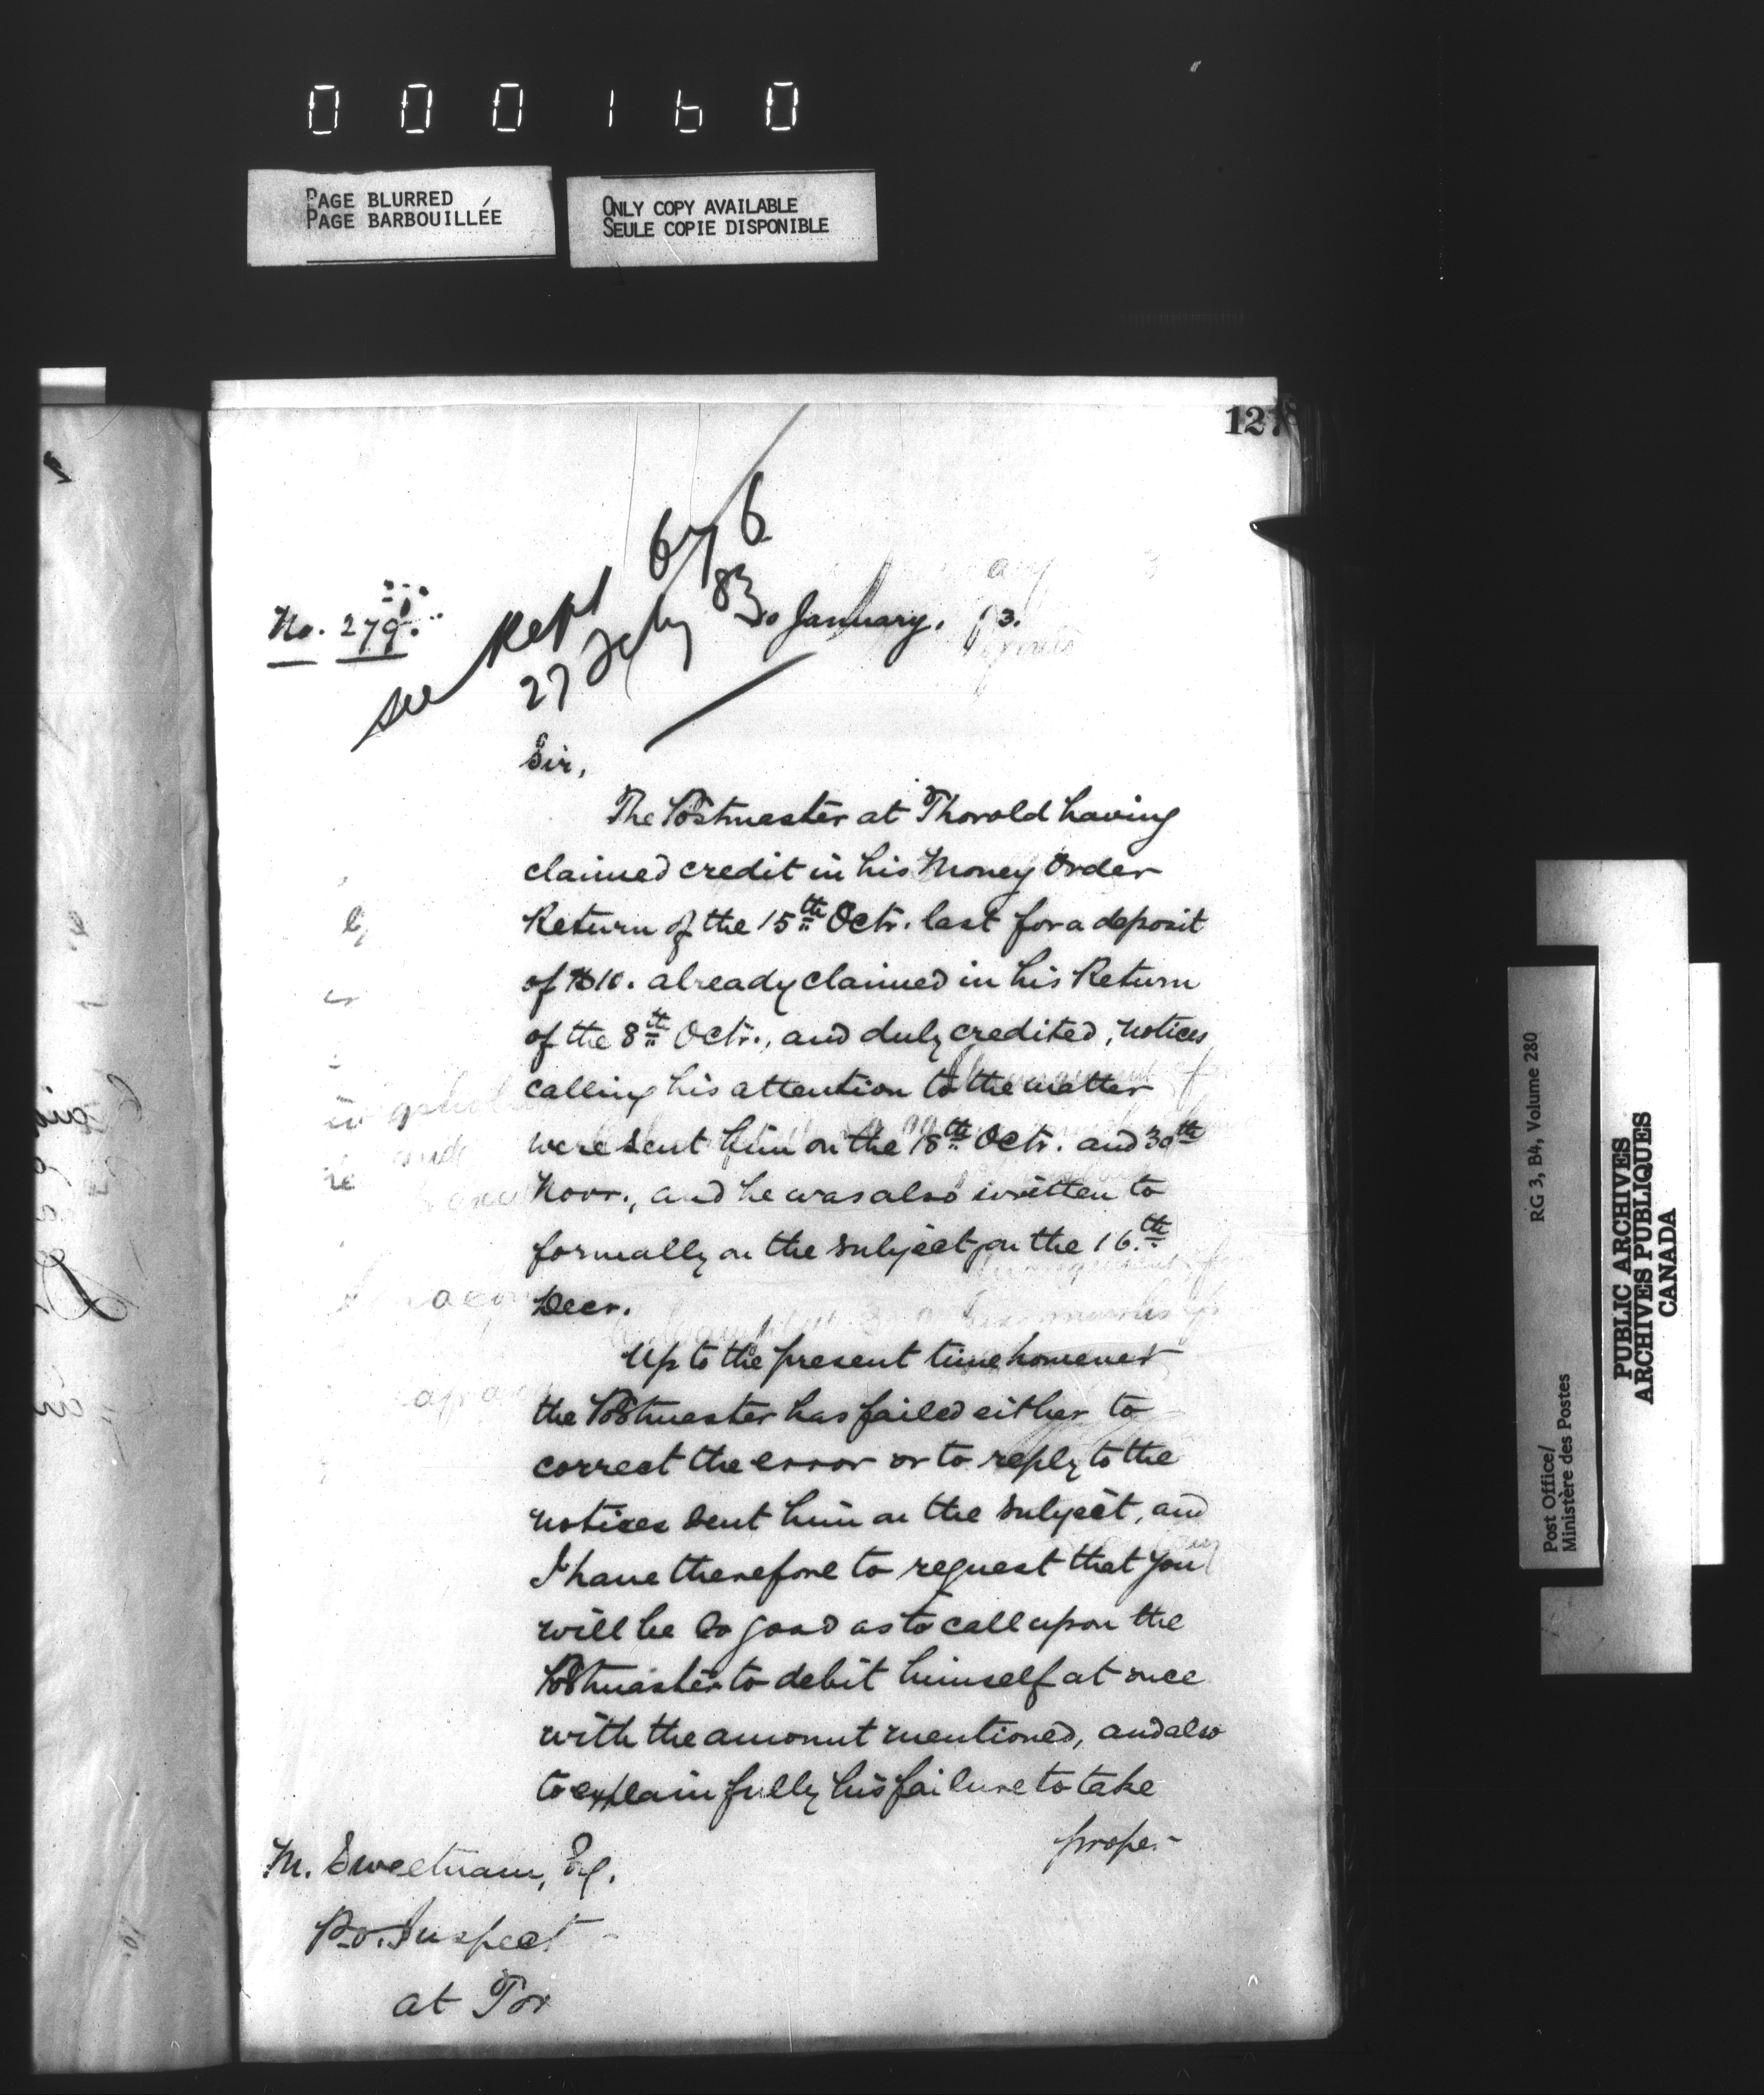 000160
PAGE BLURRED
PAGE BARBOUILLÉE
ONLY COPY AVAILABLE
SEULE COPIE DISPONIBLE
127
No. 279.
see Rept 676
27 July 83
30 January, 83.
Sir,
The Postmaster at Thorold having
claimed credit in his Money Order
Return of the 15th Octr. last for a deposit
of $10. already claimed in his Return
of the 8th Octr., and duly credited, notices
calling his attention to the matter
were sent him on the 18th Octr. and 30th
Novr., and he was also written to
formally on the subject on the 16th
Decr.
Up to the present time however
the Postmaster has failed either to
correct the error or to reply to the
notices sent him on the subject, and
I have therefore to request that you
will be so good as to call upon the
Postmaster to debit himself at once
with the amount mentioned, and also
to explain fully his failure to take
proper
M. Sweetnam, Esq.
P.O. Inspect
at Tor
RG 3, B4, Volume 280
Post Office/
Ministère des Postes
PUBLIC ARCHIVES
ARCHIVES PUBLIQUES
CANADA